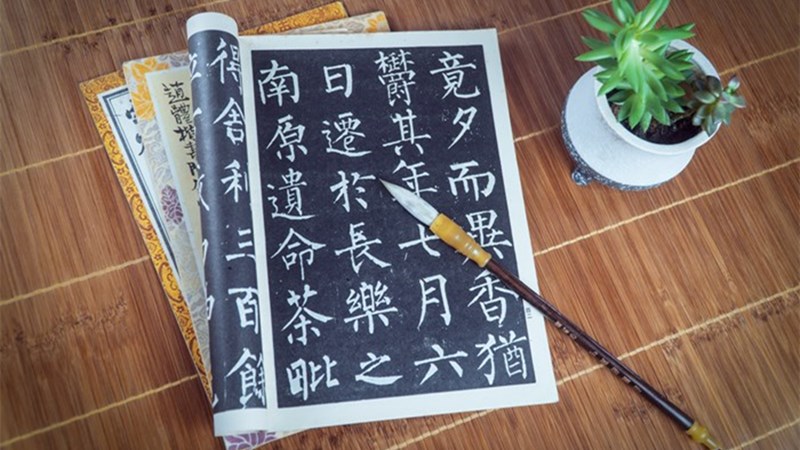 竟夕而異香猶
鬱其年七月六
日遷於長樂之
南原遺命茶毗
得舍利三百餘
道體